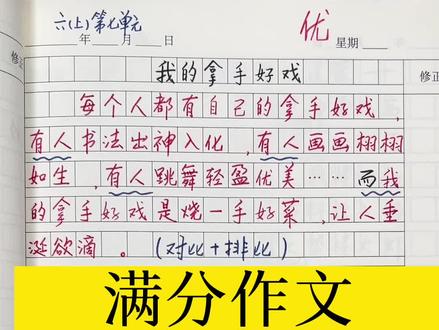 六(上)第七单元
优
年 月 日
星期
修正
修正
我的拿手好戏
每个人都有自己的拿手好戏,
有人书法出神入化,有人画画栩栩
如生,有人跳舞轻盈优美……而我
的拿手好戏是烧一手好菜,让人垂
涎欲滴。(对比+排比)
满分作文